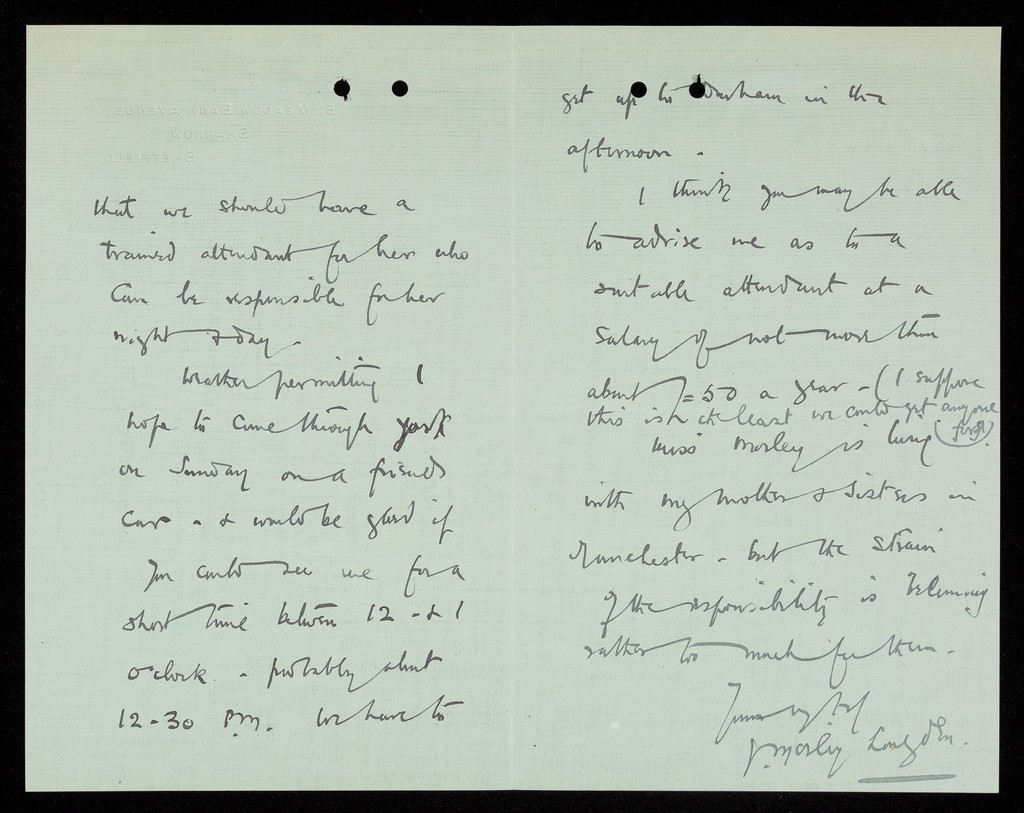 5, MEADOW BANK AVENUE
SHARROW
SHEFFIELD
that we should have a
trained attendant for her who
can be responsible for her
night & day.
Weather permitting I
hope to come through York
on Sunday on a friends
car - & would be glad if
you could see me for a
short time between 12 - & 1
o'clock - probably about
12-30 P.M. We have to
get up to Durham in the
afternoon -
I think you may be able
to advise me as to a
suitable attendant at a
salary of not more than
about £50 a year - (I suppose
this is the least we could get anyone
for)
Miss Morley is living
with my mother & sisters in
Manchester - but the strain
of the responsibility is becoming
rather too much for them -
Yours
J. Morley Longden.